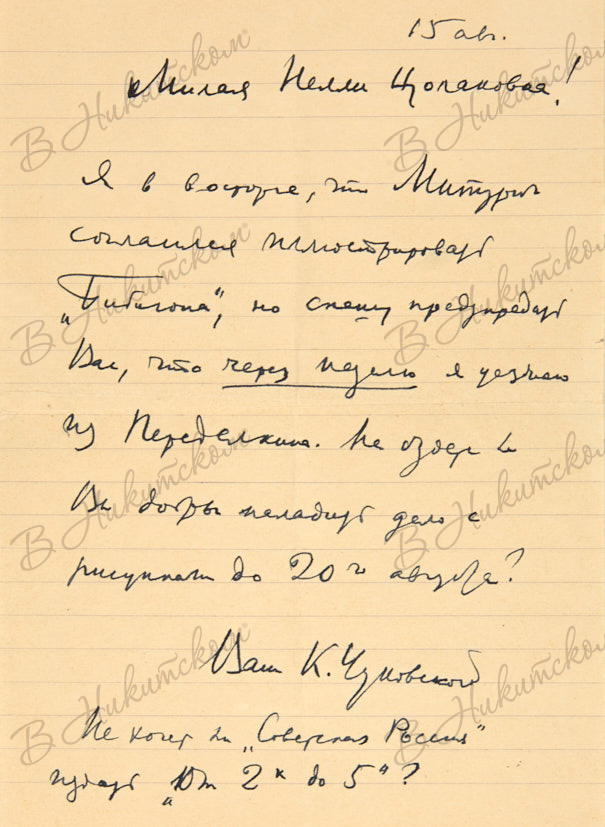 15 авг.
Милая Нелли Цолаковна!
Я в восторге, что Митурич
согласился иллюстрировать
„Бибигона“, но спешу предупредить
Вас, что через неделю я уезжаю
из Переделкина. Не будете ли
Вы добры наладить дело с
рисунками до 20го августа?
Ваш К. Чуковский
Не хочет ли „Советская Россия“
издать „От 2х до 5“?
В Никитском
В Никитском
В Никитском
В Никитском
В Никитском
В Никитском
В Никитском
В Никитском